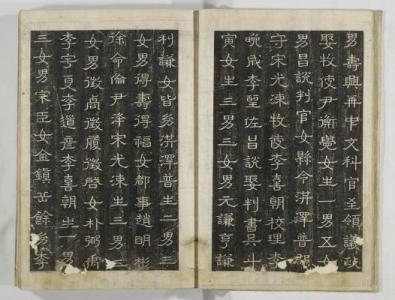 男壽興再中文科官至領議政
娶牧使尹衡覺女生一男五女
男昌說判官女縣令洪澤普郡
守宋光洬牧使李喜朝校理李
晩成李佐昌說娶判書吳斗
寅女生三男三女男元謙亨謙
利謙女皆幼洪澤普生二男三
女男得壽得福女都事趙明彬
徐命倫尹澤宋光洬生三男三
女男徵徵履徵啓女朴弼禹
李宇夏李彦李喜朝生一男
三女男臣女金鎭餘幼李